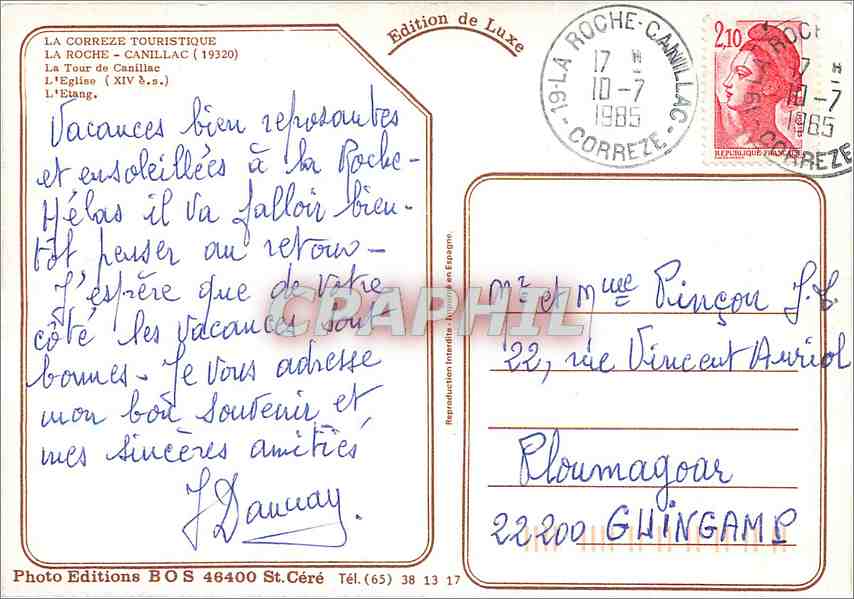 LA CORREZE TOURISTIQUE
LA ROCHE - CANILLAC (19320)
La Tour de Canillac
L'Eglise (XIV è.s.)
L'Etang.
Edition de Luxe
19-LA ROCHE-CANILLAC-
17 H
10-7
1985
- CORREZE -
2,10
REPUBLIQUE FRANÇAISE
19-LA ROCH
7 H
10-7
1985
CORREZE
Vacances bien reposantes
et ensoleillées à la Roche-
Hélas il va falloir bien-
tôt penser au retour -
J'espère que de votre
côté les vacances sont
bonnes - Je vous adresse
mon bon souvenir et
mes sincères amitiés
Reproduction Interdite - Imprimé en Espagne
CPAPHIL
Mr et Mme Pinçon J.L
22, rue Vincent Auriol
Ploumagoar
22200 GUINGAMP
Photo Editions BOS 46400 St.Céré Tél. (65) 38 13 17